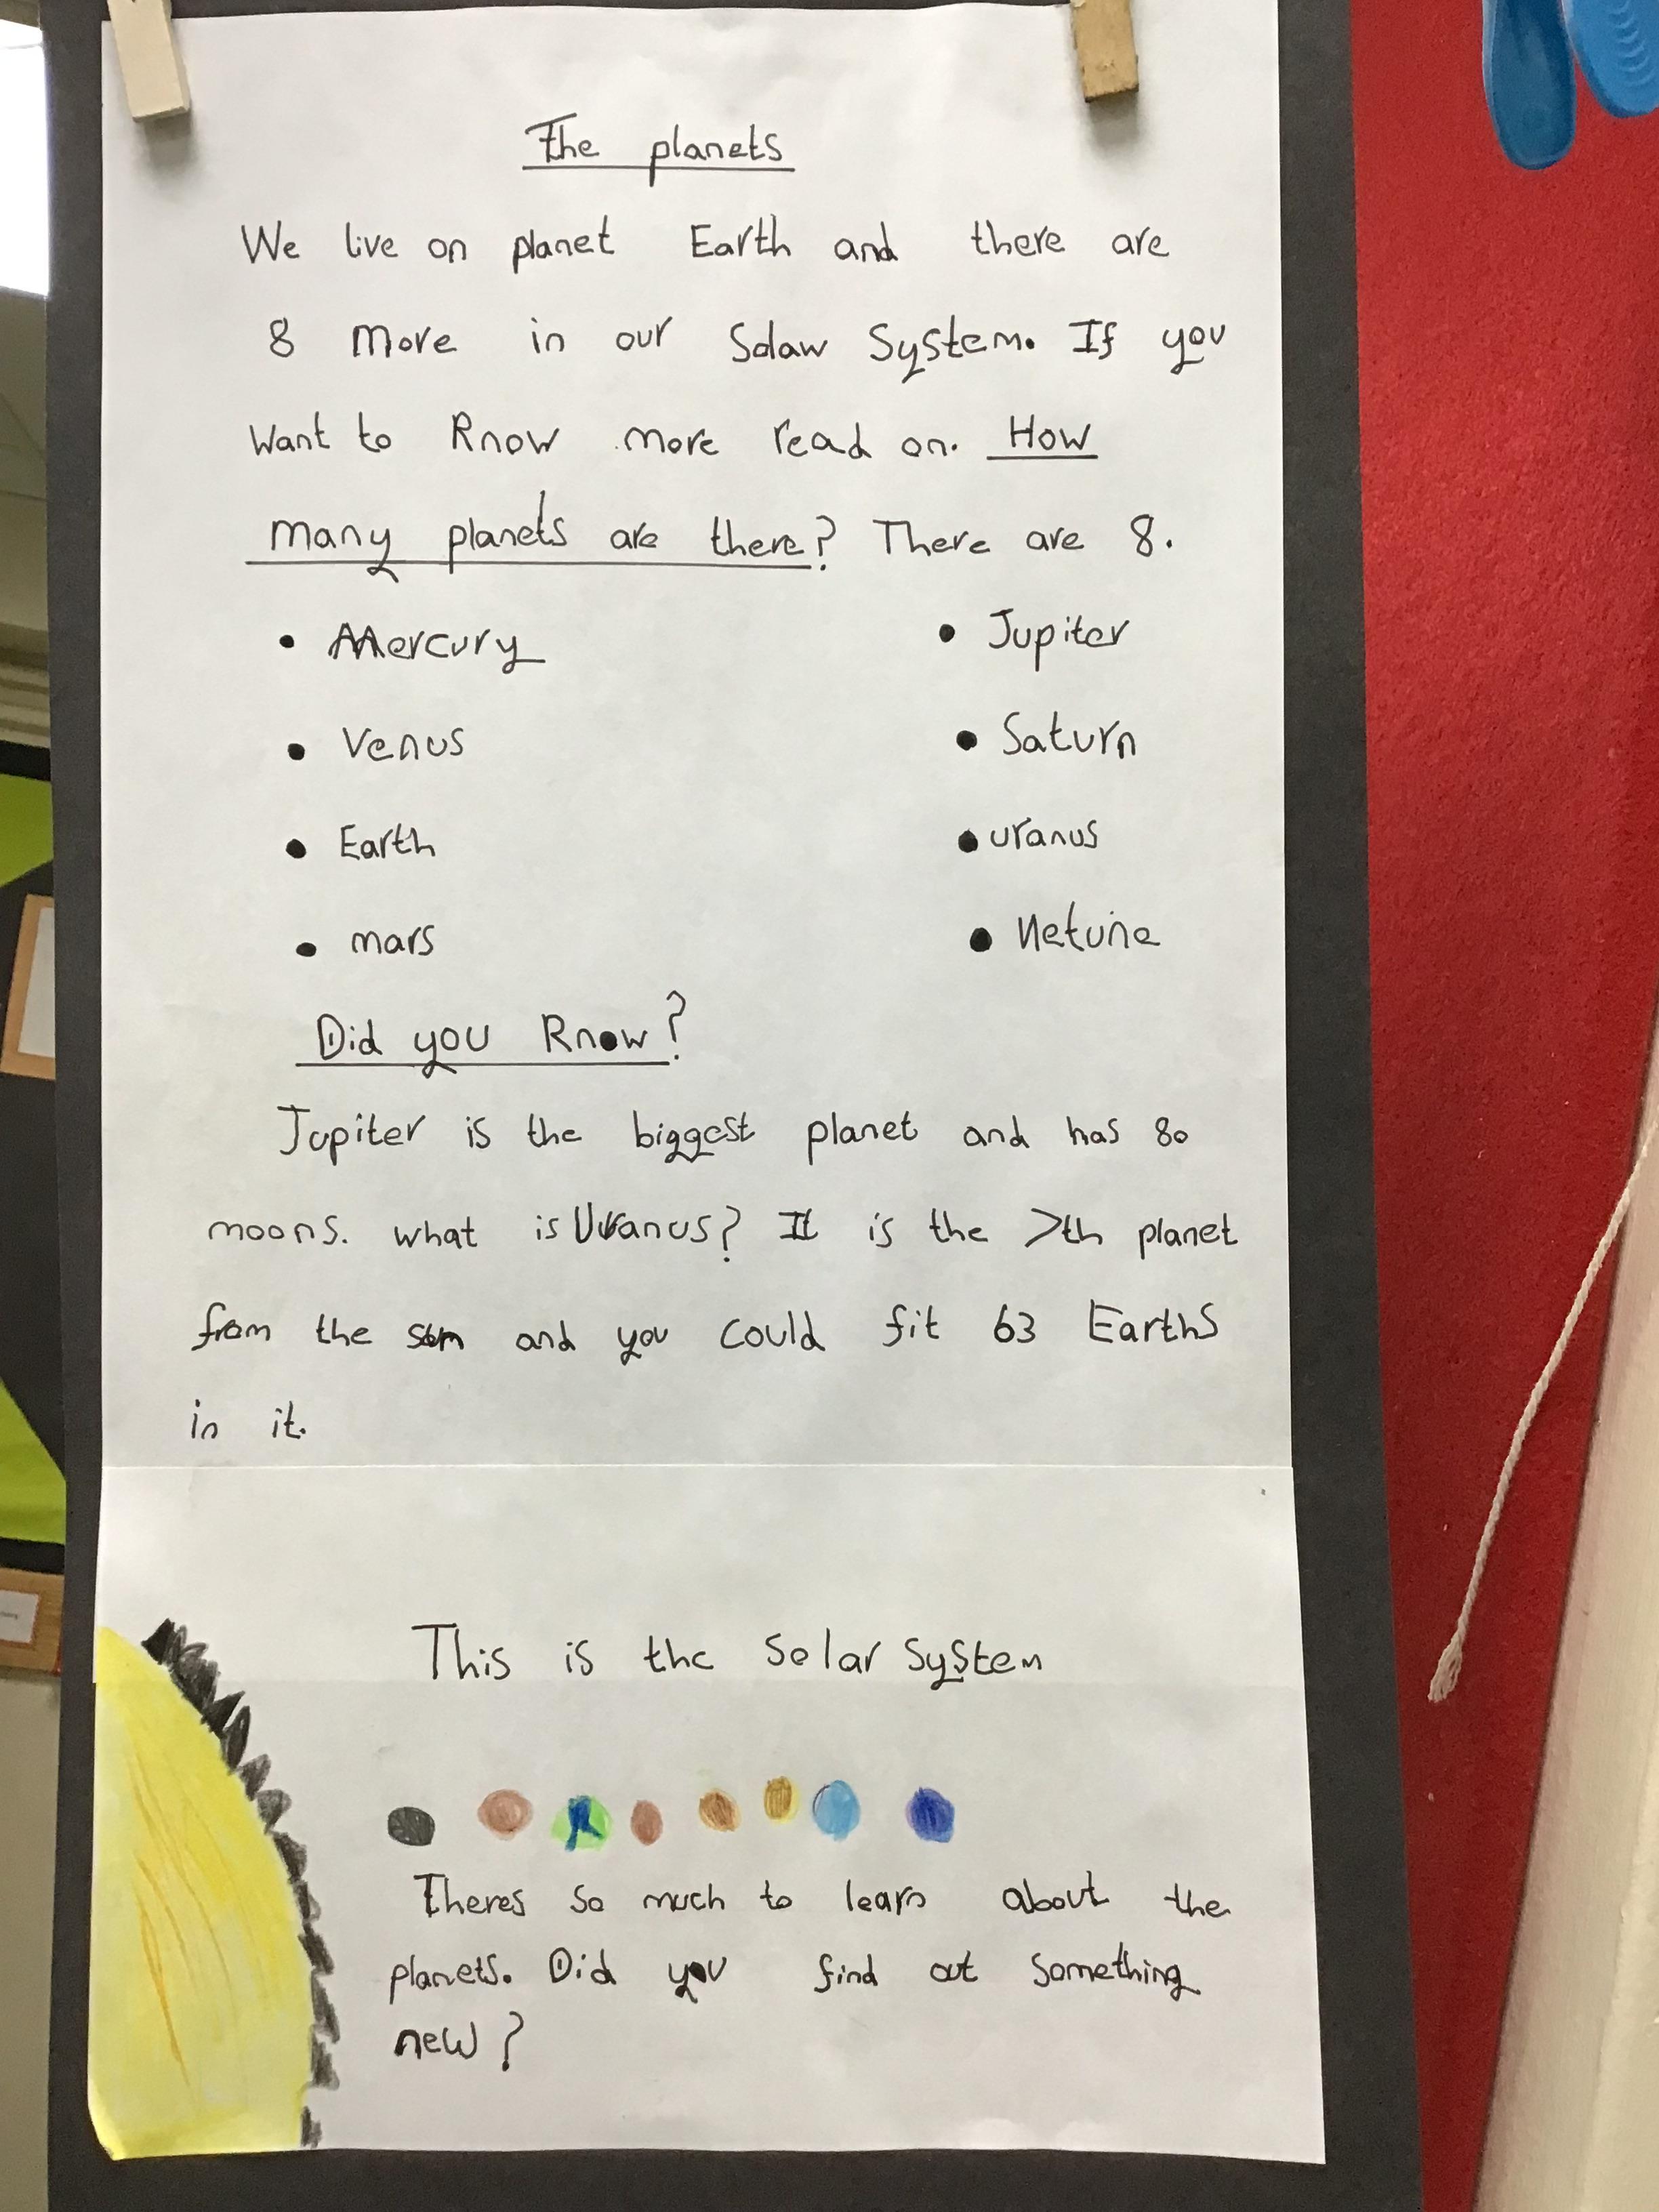 The planets
We live on planet Earth and there are
8 More in our Solaw System. If you
Want to Know more read on. How
many planets are there? There are 8.
• Mercury
• Venus
• Earth
• mars
• Jupiter
• Saturn
• uranus
• Netune
Did you Know?
Jupiter is the biggest planet and has 80
moons. what is Uranus? It is the 7th planet
from the sun and you could fit 63 Earths
in it.
This is the Solar System
Theres so much to learn about the
planets. Did you find out something
new?